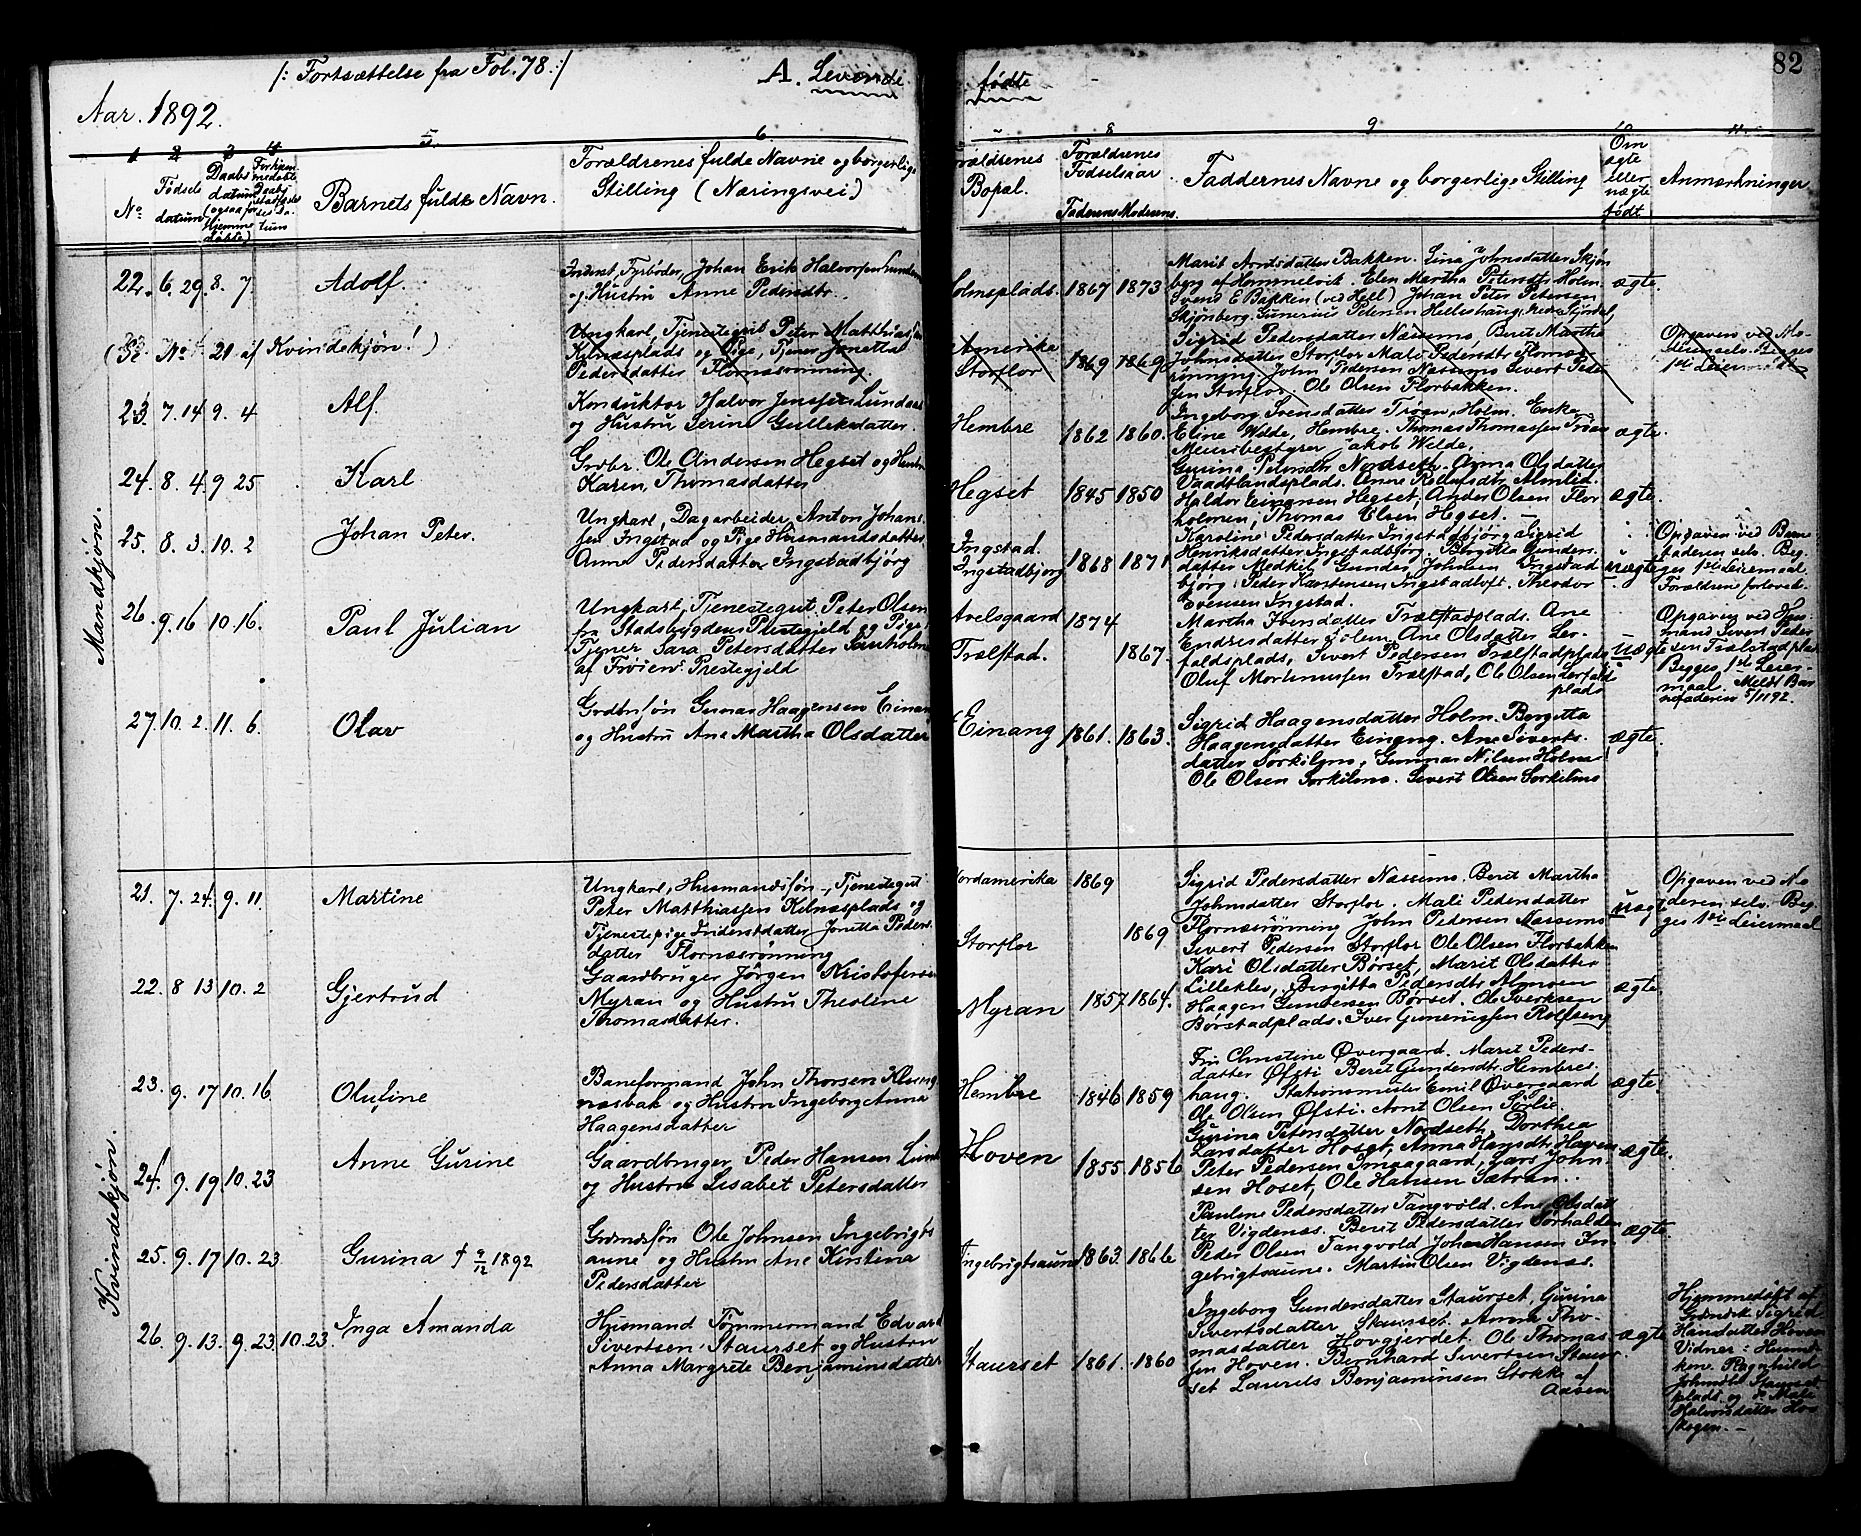 /: Fortsættelse fra Fol. 78 :/
A. Levende fødte
82
Aar. 1892.
1 2 3 4 5 6 7 8 9 10 11
No
Fødsels datum
Daabs datum (ogsaa for Hjemmedøbte)
Barnets fulde Navn.
Forældrenes fulde Navne og borgerlige
Stilling (Næringsvei)
Forældrenes Bopæl.
Forældrenes Fødselsaar
Faderens Moderens
Faddernes Navne og borgerlige Stilling
Om ægte eller uægte født
Anmærkninger
Mandkjøn.
22. 6. 29. 8. 7
Adolf.
Inderst, Fyrbøder, Johan Erik Halvorsen
og Hustru Anne Pedersdtr.
Holmsplads. 1867 1873
Marit Arntsdatter Bakken. Lina Johnsdatter Skjøn
berg af Hommelvik. Elen Martha Petersdtr Holm
Svend E Bakken (ved Hell) Johan Peter Petersen
Skjønberg. Gunerius Pedersen Helleshaug, Nedre Stjørdal.
ægte.
(Se No 21 af Kvindekjøn!)
Ungkarl, Tjenestegut Peter Matthiassen
Kilnæsplads og Pige, Tjener Jonetta
Pedersdatter Flornæsrønning.
Amerika
Storflor
1869 1869
Sigrid Pedersdatter Næssmo. Berit Martha
Johnsdatter Storflor Mali Pedersdtr Flornæs
rønning. John Pedersen Næssmo Sivert Peder
sen Storflor. Ole Olsen Florbakken.
Opgaven ved Mo-
deren selv. Begges
1ste Leiermaal
23. 7. 14. 9. 4
Alf.
Konduktør Halvor Jensen Lundaas
og Hustru Serine Gulleksdatter.
Hembre 1862 1860.
Ingeborg Svensdatter Trøen, Holm. Enke
Eline Wilde, Hembre. Thomas Thomassen Trøen
Meieribestyrer Jakob Wilde.
ægte.
24. 8. 4. 9 25
Karl
Grdbr. Ole Andersen Hegset og Hustru
Karen, Thomasdatter
Hegset 1845 1850
Gurina Petersdtr Nordseth. Anna Olsdatter
Vaadtlandsplads. Anne Rolfsdtr Almlid.
Haldor Einarsen Hegset, Anders Olsen Flor
holmen, Thomas Olsen Hegset.
ægte.
25. 8. 3. 10. 2
Johan Peter.
Ungkarl, Dagarbeider, Anton Johan-
sen Ingstad og Pige Husmandsdatter
Anne Pedersdatter Ingstadbjørg
Ingstad.
Ingstadbjørg 1868 1871
Karoline Pedersdatter Ingstadbjørg Sigrid
Henriksdatter Ingstadbjørg. Birgitta Gunders
datter Medkil Gunder Johnsen Ingstad
bjørg. Peder Karstensen Ingstadloft. Theodor
Evensen Ingstad.
uægte
Opgaven ved Barne
faderen selv. Beg
ges 1ste Leiermaal
Forældrene forlovede.
26. 9. 16 10. 16.
Paul Julian
Ungkarl, Tjenestegut. Peter Olsen
fra Stadsbygdens Præstegjeld og Pige,
Tjener Sara Petersdatter
af Frøiens Præstegjeld
Avelsgaard 1874
Trælstad. 1867.
Martha Iversdatter Trælstadplads. Ane
Endresdatter Solem Ane Olsdatter Ler-
faldsplads, Sivert Pedersen Trælstadplads
Oluf Mortinussen Trælstad, Ole Olsen Lerfald
plads
uægte
Opgaven ved Hus
mand Sivert Peder
sen Trælstadplads
Begges 1ste Leier-
maal. Meldt Bar
nefaderen 5/11 92.
27. 10. 2. 11. 6.
Olav
Grdbrsøn Gunnar Haagensen Einang
og Hustru Ane Martha Olsdatter
Einang 1861. 1863.
Sigrid Haagensdatter Holm. Bergitta
Haagensdatter Einang. Ane Siverts-
datter Sørkilmo, Gunnar Nilsen Holm
Ole Olsen Sørkilmo. Sivert Olsen Sørkilmo
ægte.
Kvindekjøn.
21. 7. 24. 9. 11.
Martine
Ungkarl, Husmandssøn, Tjenestegut
Peter Matthiassen Kilnæsplads og
Tjenestepige Inderstdatter Jonetta Peders
datter Flornæsrønning
Nordamerika 1869
Storflor 1869
Sigrid Pedersdatter Næssmo. Berit Martha
Johnsdatter Storflor. Mali Pedersdatter
Flornæsrønning John Pedersen Næssmo
Sivert Pedersen Storflor Ole Olsen Florbakken
uægte
Opgaven ved Mo
deren selv. Beg-
ges 1ste Leiermaal
22. 8 13 10. 2
Gjertrud
Gaardbruger Jørgen Kristofersen
Myran og Hustru Theoline
Thomasdatter.
Myran 1857 1864.
Kari Olsdatter Børset, Marit Olsdatter
Lilleklev, Birgitta Pedersdtr
Haagen Gundersen Børset. Ole Sverksen
Børstadplads. Iver Gunerussen Rolfseng
ægte.
23. 9. 17 10. 16
Olufine
Baneformand John Thorsen Klung
næsbak og Hustru Ingeborg Anna
Haagensdatter
Hembre 1846 1859
Fru Christine Øvergaard. Marit Peders-
datter Øfsti Berit Gundersdtr Hembres
haug. Stationsmester Emil Øvergaard
Ole Olsen Øfsti. Arnt Olsen Sørlie.
ægte.
24. 9. 19 10. 23
Anne Gurine
Gaardbruger, Peder Hansen
og Hustru Lisabet Petersdatter
Hoven 1855 1856
Gurina Petersdatter Nordseth, Dorthea
Larsdatter Hoset, Anna Hansdtr Hoven
Peter Pedersen Lars John-
sen Hoset, Ole Hansen Sætran.
ægte.
25. 9. 17 10. 23
Gurina † 9/12 1892
Grdmdsøn Ole Johnsen Ingebrigts
aune og Hustru Ane Kirstina
Pedersdatter
Ingebrigtsaune 1863. 1866
Pauline Pedersdatter Tangvold. Ane Olsdat
ter Vigdenæs. Berit Pedersdatter Sørhalden
Peder Olsen Tangvold Johan Hansen In
gebrigtsaune. Martin Olsen Vigdenæs.
ægte.
26. 9. 13. 9. 23 10. 23
Inga Amanda
Husmand Tømmermand Edvard
Sivertsen Staurset og Hustru
Anna Margrete Benjaminsdatter
Staurset 1861. 1860
Ingeborg Gundersdatter Staurset, Gurina
Sivertsdatter Staurset Anna Tho-
masdatter Hovgjerdet. Ole Thomas
sen Hoven. Bernhard Sivertsen Staur
set Laurits Benjaminsen Stokke af
Aasen
ægte
Hjemmedøbt af
Sigrid
Hansdatter Hoven
Vidner:
Ragnhild
Johnsdtr Staurset
plads og Mali
Halvorsdatter Hov
skogen.